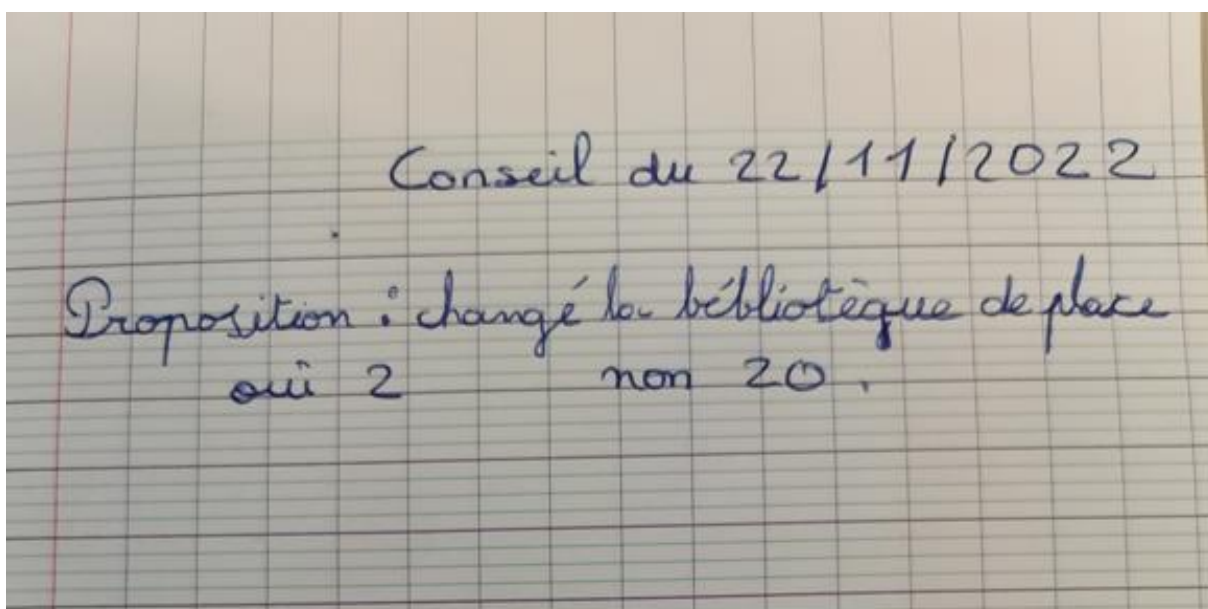 Conseil du 22/11/2022
Proposition : changé la bébliotèque de place
oui 2 non 20.